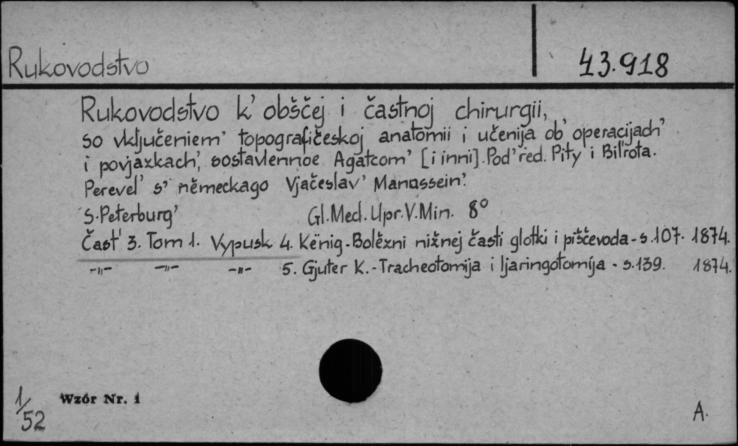 Rukovodstvo 43.918
Rukovodstvo k' obščej i častnoj chirurgii,
so vključeniem' topografičeskoj anatomii i učenija ob' operacijach'
i povjazkach', sostavlennoe Agatcom' [i inni]. Pod' red. Pity i Bil'rota.
Perevel' s' německago Vjačeslav' Manassein'.
S. Peterburg' Gl. Med. Upr. V. Min. 8°
Čast' 3. Tom 1. Vypusk 4. Kënig - Bolězni nižnej časti glotki i piščevoda - s. 107. 1874.
-„- -„- -„- 5. Gjuter K. - Tracheotomija i ljaringotomija - s. 139. 1874.
1/52 Wzór Nr. 1 A.